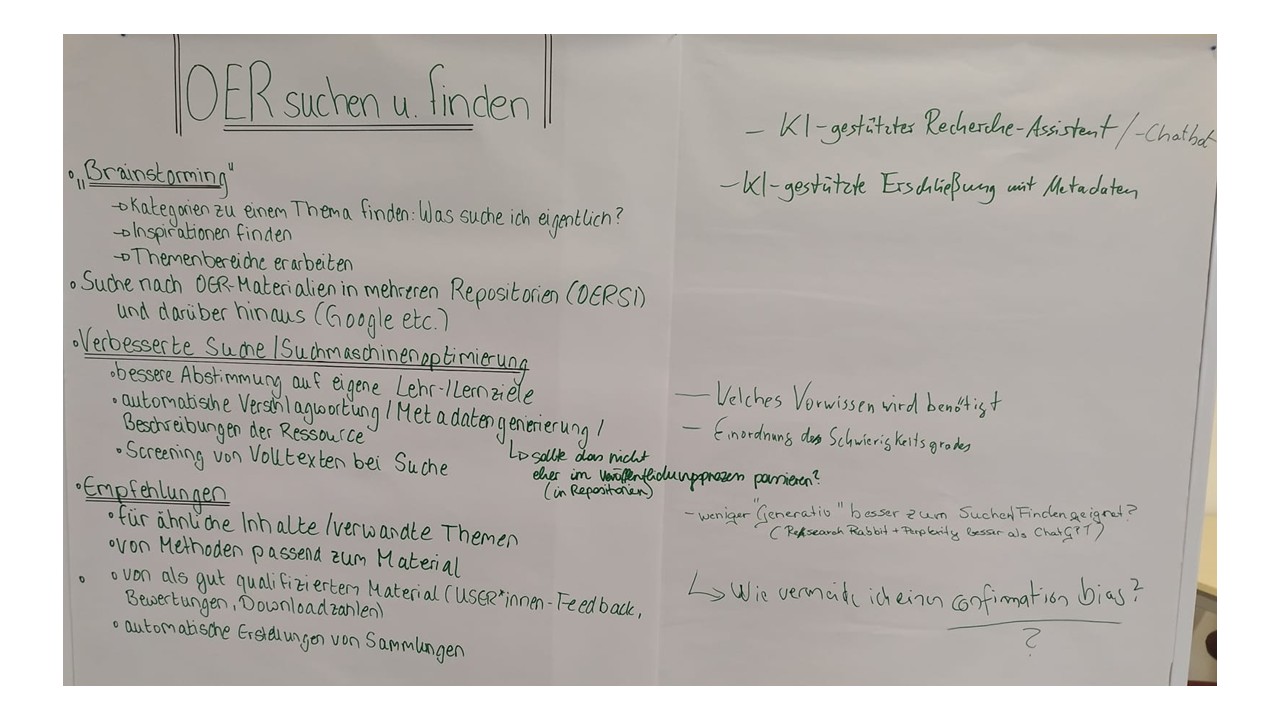 OER suchen u. finden
• „Brainstorming"
→ Kategorien zu einem Thema finden: Was suche ich eigentlich?
→ Inspirationen finden
→ Themenbereiche erarbeiten
• Suche nach OER-Materialien in mehreren Repositorien (OERSI)
und darüber hinaus (Google etc.)
• Verbesserte Suche / Suchmaschinenoptimierung
• bessere Abstimmung auf eigene Lehr-/Lernziele
• automatische Verschlagwortung / Metadatengenerierung /
Beschreibungen der Ressource
↳ sollte das nicht
eher im Veröffentlichungsprozess passieren?
(in Repositorien)
• Screening von Volltexten bei Suche
• Empfehlungen
• für ähnliche Inhalte / verwandte Themen
• von Methoden passend zum Material
• von als gut qualifiziertem Material (USER*innen-Feedback,
Bewertungen, Downloadzahlen)
• automatische Erstellungen von Sammlungen
– KI-gestützter Recherche-Assistent / -Chatbot
– KI-gestützte Erschließung mit Metadaten
– Welches Vorwissen wird benötigt
– Einordnung des Schwierigkeitsgrades
– weniger "Generativ" besser zum Suchen/Finden geeignet?
(Research Rabbit + Perplexity besser als ChatGPT)
↳ Wie vermeide ich einen confirmation bias?
?